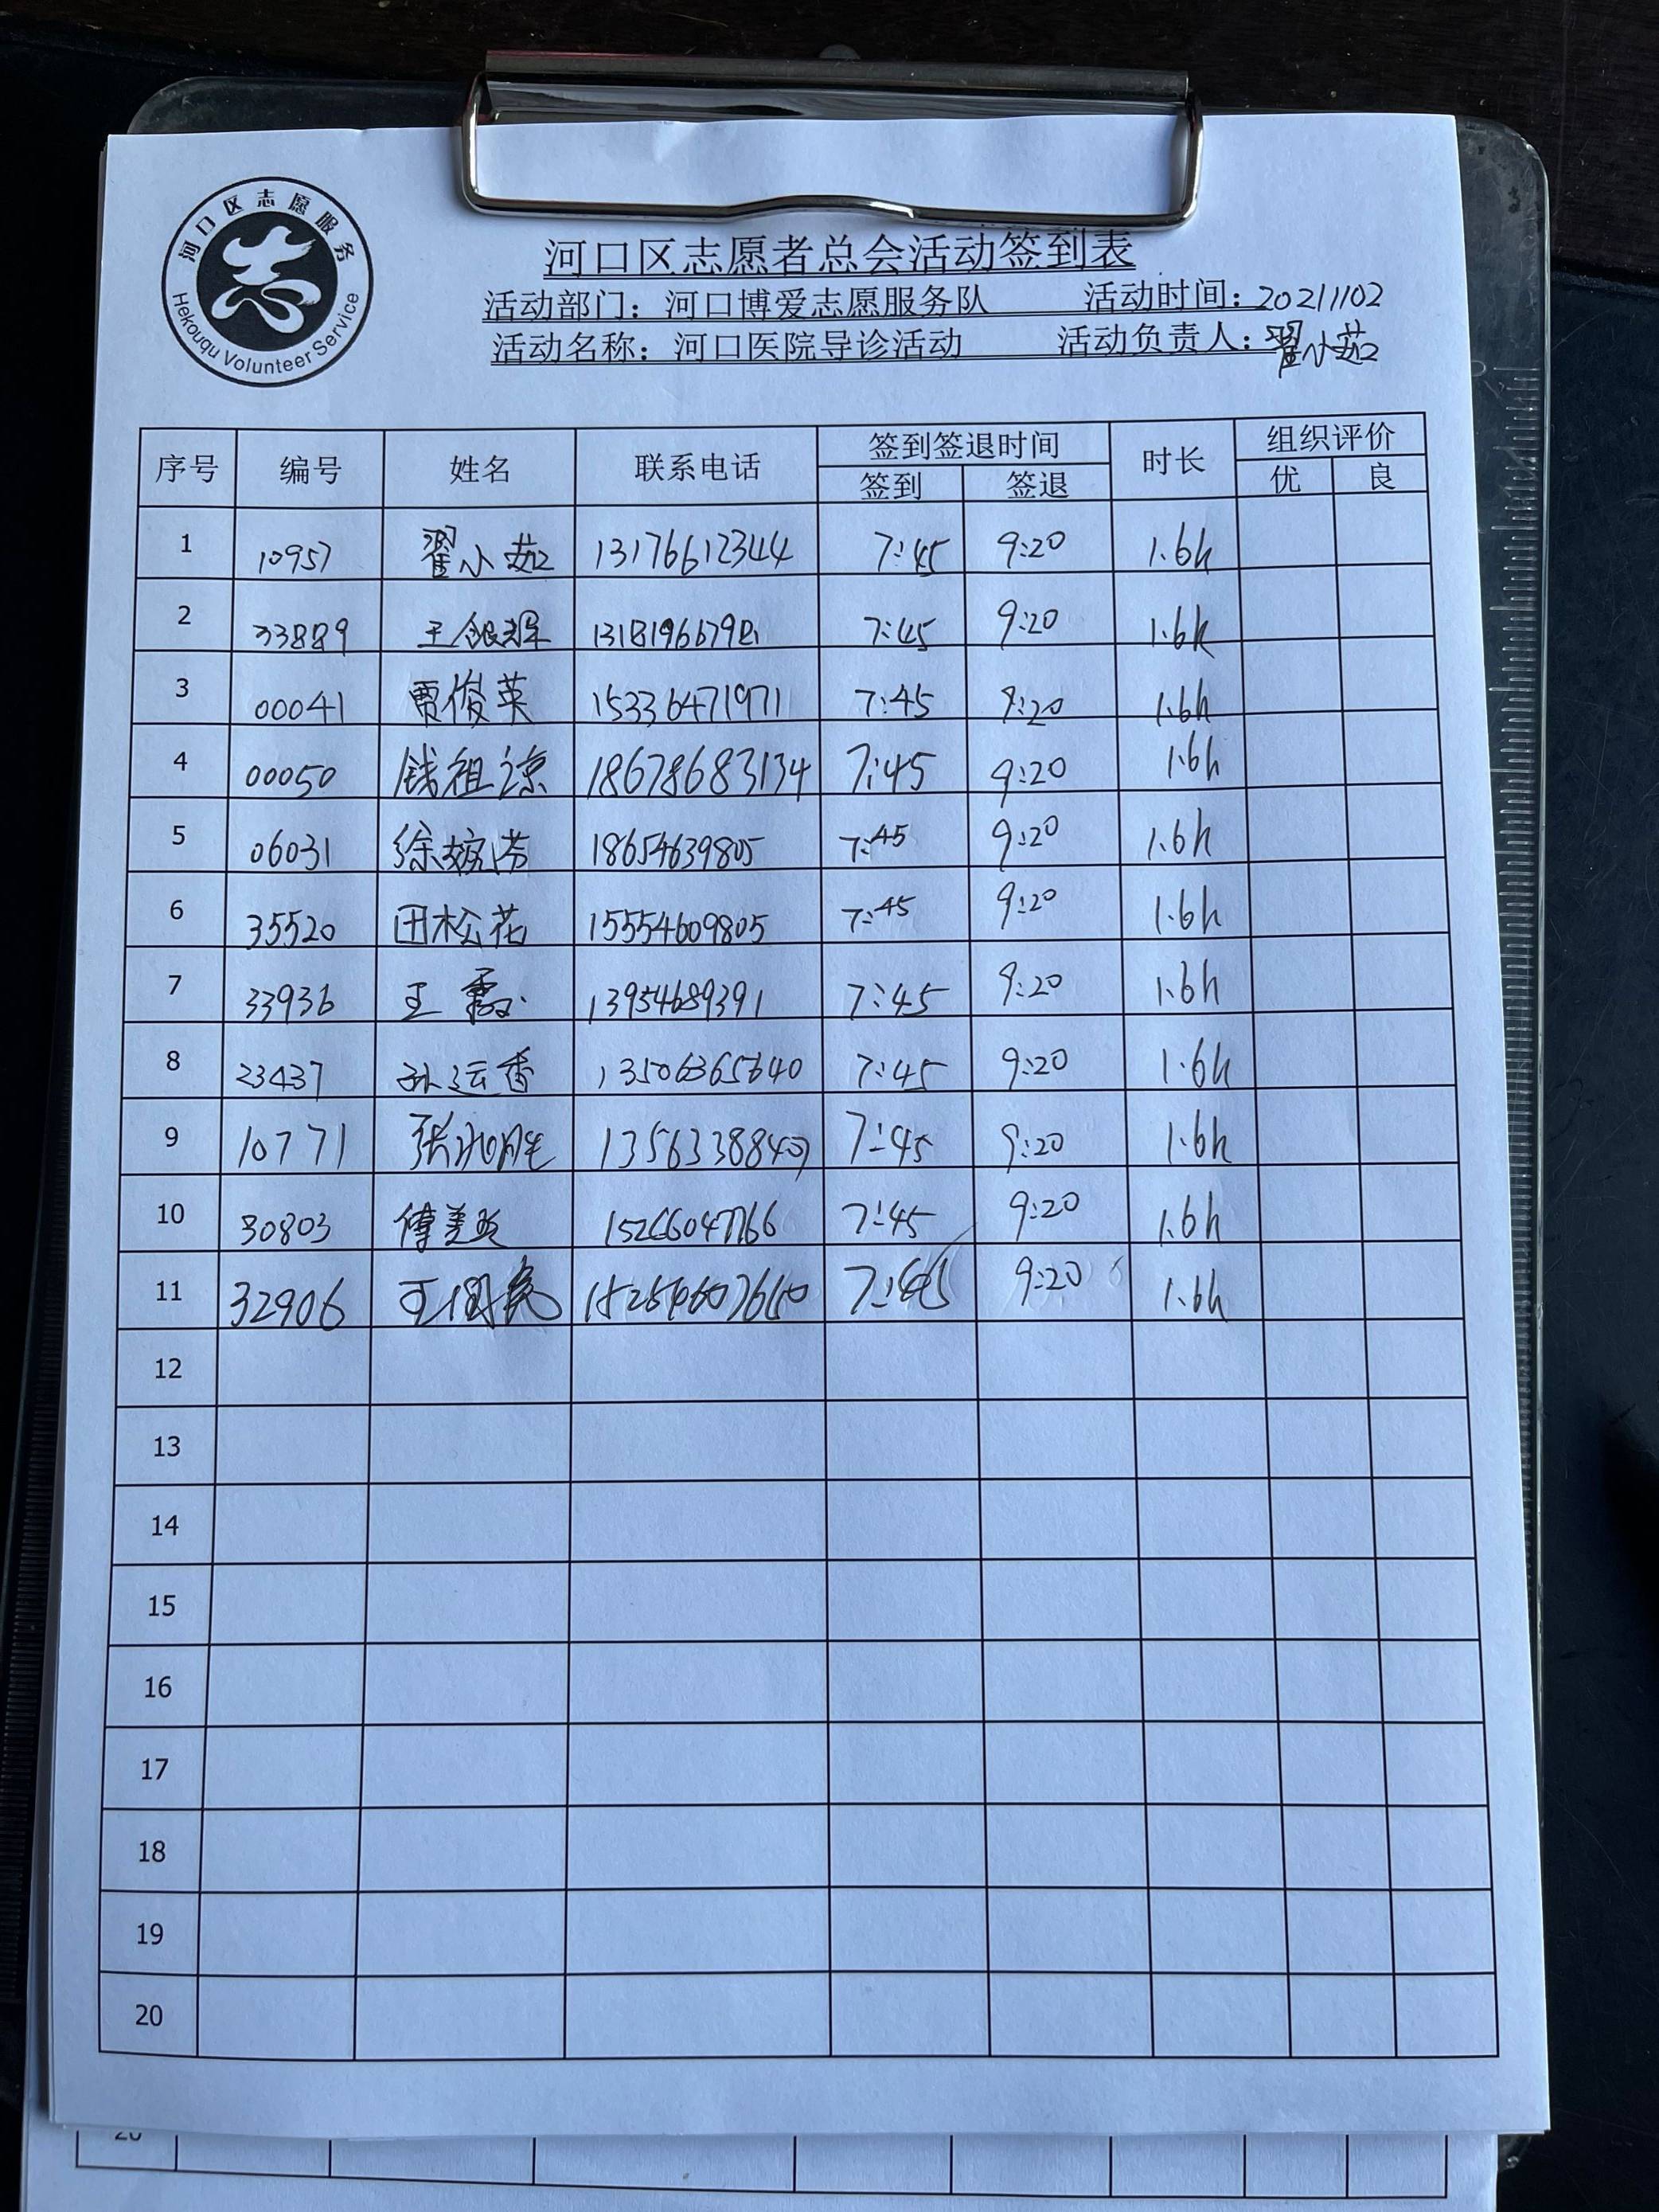 河口区志愿服务
Hekouqu Volunteer Service
河口区志愿者总会活动签到表
活动部门：河口博爱志愿服务队 活动时间：20211102
活动名称：河口医院导诊活动 活动负责人：翟小茹
序号 编号 姓名 联系电话 签到签退时间 时长 组织评价
签到 签退 优 良
1 10957 翟小茹 13176612344 7:45 9:20 1.6h
2 33889 王银翠 7:45 9:20 1.6h
3 00041 贾俊英 15336471971 7:45 9:20 1.6h
4 00050 钱祖凉 18678683134 7:45 9:20 1.6h
5 06031 徐婉芳 18654639805 7:45 9:20 1.6h
6 35520 田松花 15554609805 7:45 9:20 1.6h
7 33936 王霞 13954689391 7:45 9:20 1.6h
8 23437 孙运香 13506365640 7:45 9:20 1.6h
9 10771 7:45 9:20 1.6h
10 30803 傅美英 15266047766 7:45 9:20 1.6h
11 32906 7:45 9:20 1.6h
12
13
14
15
16
17
18
19
20
20